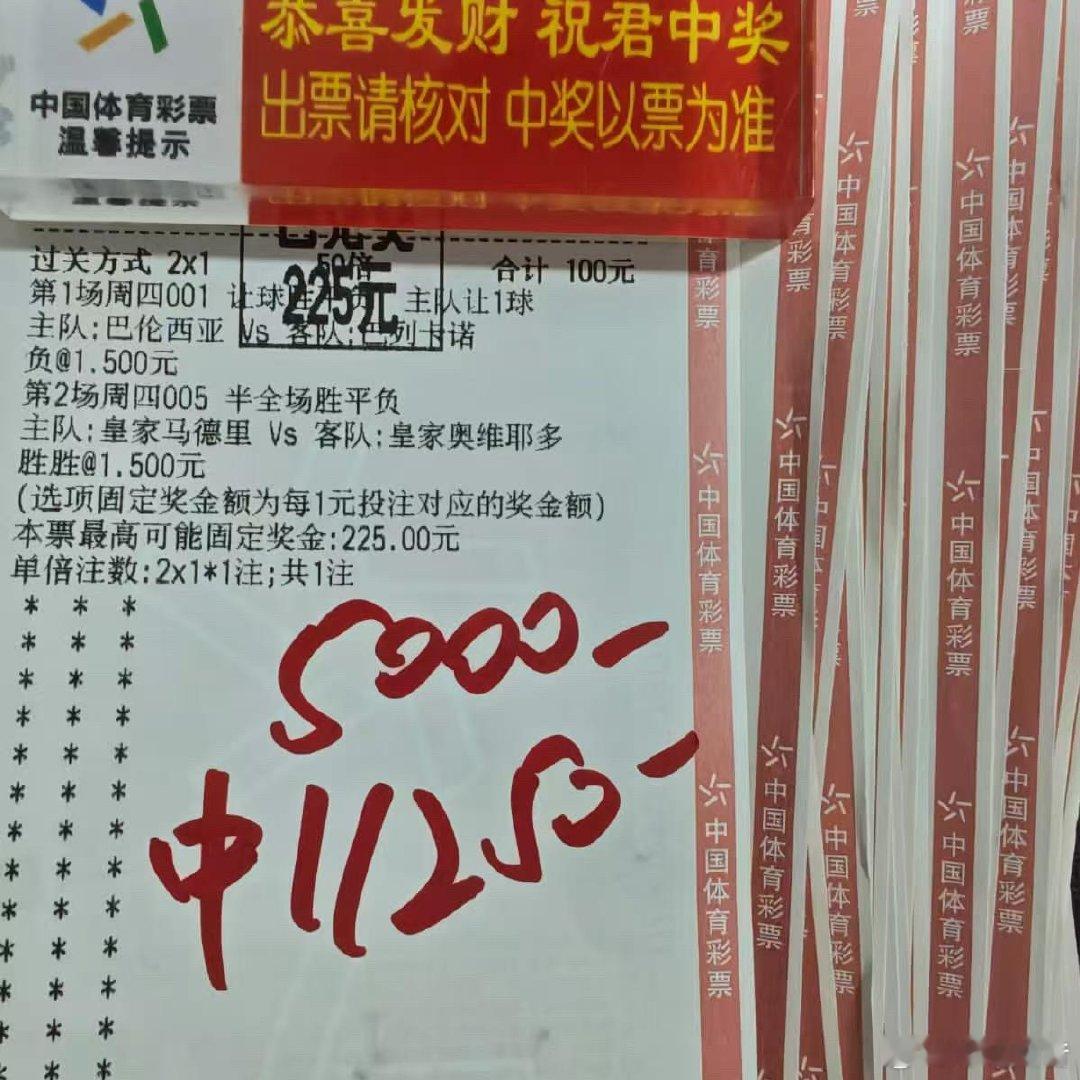 恭喜发财 祝君中奖
出票请核对 中奖以票为准
中国体育彩票
温馨提示
过关方式 2x1 50倍 合计 100元
225元
第1场周四001 让球胜平负 主队让1球
主队:巴伦西亚 Vs 客队:巴列卡诺
负@1.500元
第2场周四005 半全场胜平负
主队:皇家马德里 Vs 客队:皇家奥维耶多
胜胜@1.500元
(选项固定奖金额为每1元投注对应的奖金额)
本票最高可能固定奖金:225.00元
单倍注数:2x1*1注;共1注
5000-
中11250-
中国体育彩票
中国体育彩票
中国体育彩票
中国体育彩票
中国体育彩票
中国体育彩票
中国体育彩票
中国体育彩票
中国体育彩票
中国体育彩票